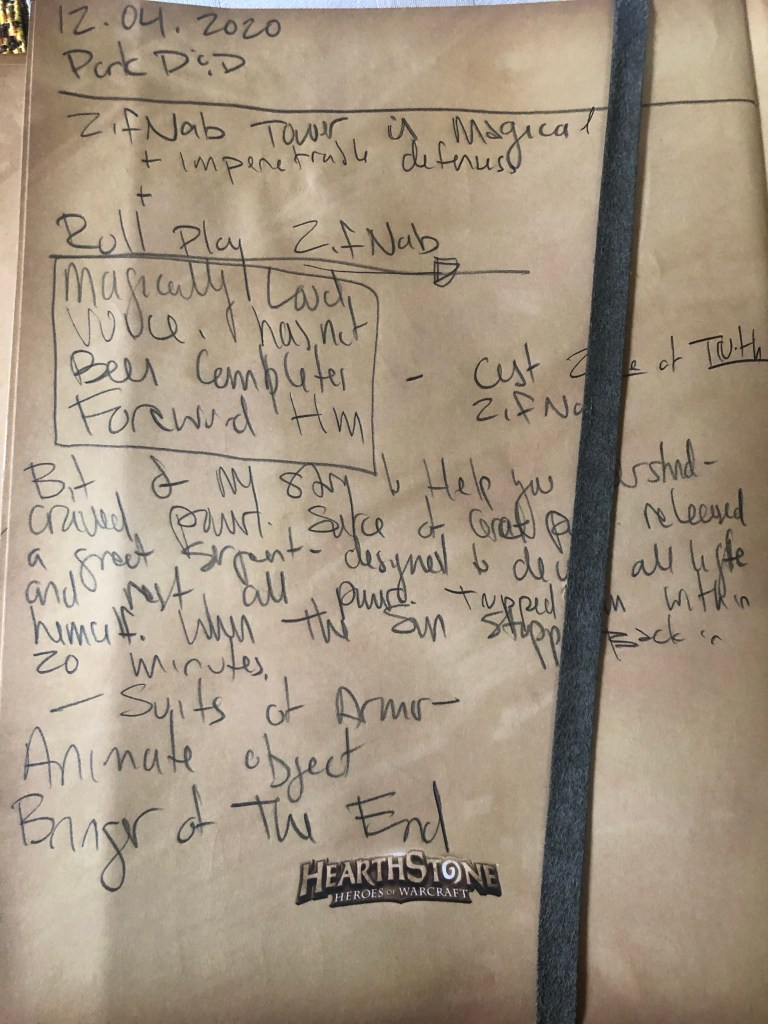 12.04.2020
Park D&D
ZifNab Tower is Magical
+ Impenetrable defenses
+
Roll Play ZifNab
Magically Loud,
voice. has not
Been Completer
Foreword Him
- Cast of Truth
Bit of my story to Help you
craved power. of Great released
a great serpent - designed to all life
and rest all power. trapped within
himself. When the Sun Back in
20 minutes.
- Suits of Armor -
Animate object
Bringer of The End
HEARTHSTONE
HEROES OF WARCRAFT